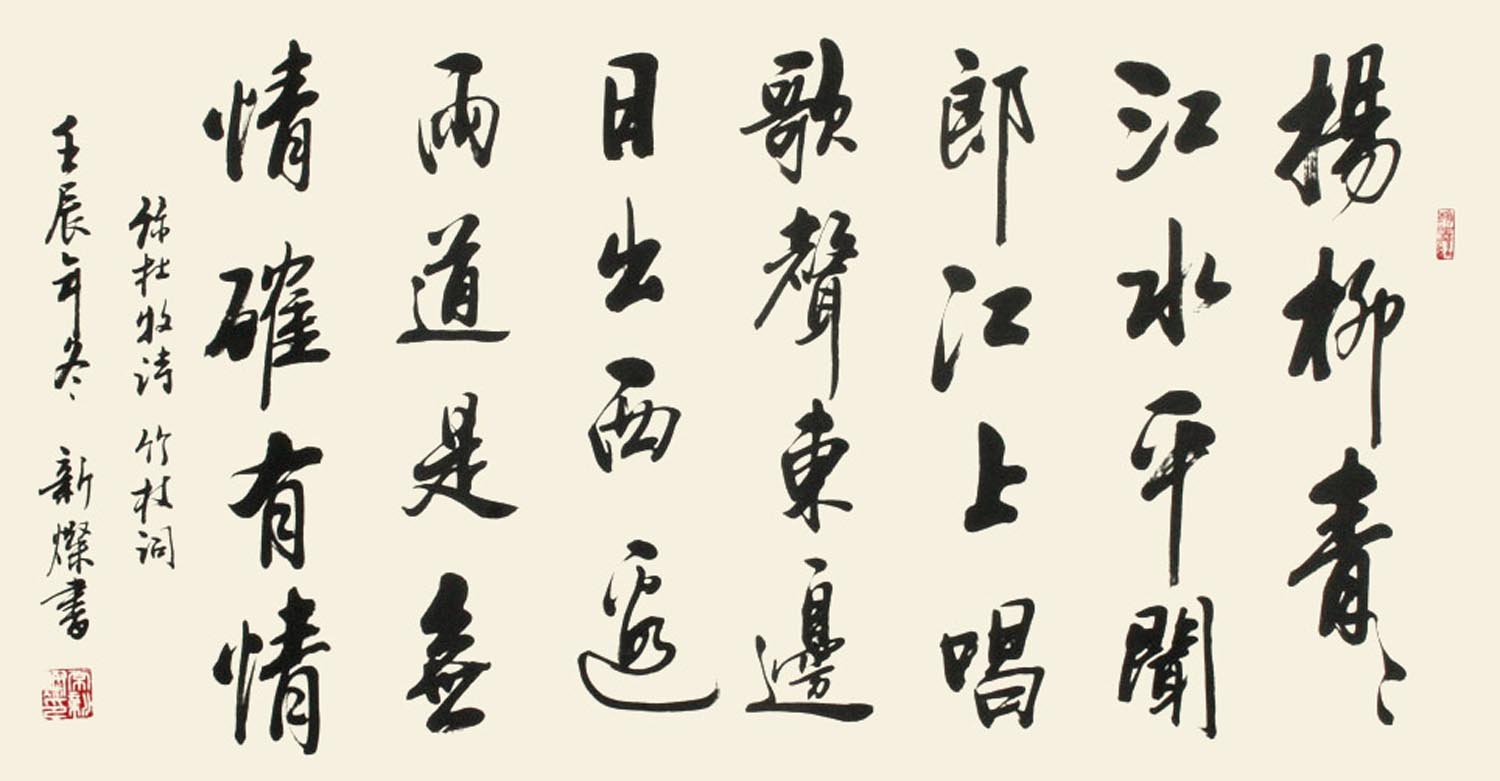 揚柳青〻
江水平聞
郎江上唱
歌聲東邊
日出西邊
雨道是無
情確有情
錄杜牧詩 竹枝詞
壬辰年冬 新燦書